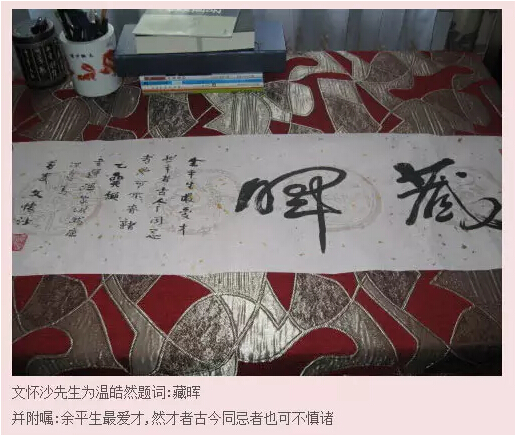 藏晖
余平生最爱才
然才者古今同忌
者也可不慎诸
文怀沙
文怀沙先生为温皓然题词:藏晖
并附嘱:余平生最爱才,然才者古今同忌者也可不慎诸